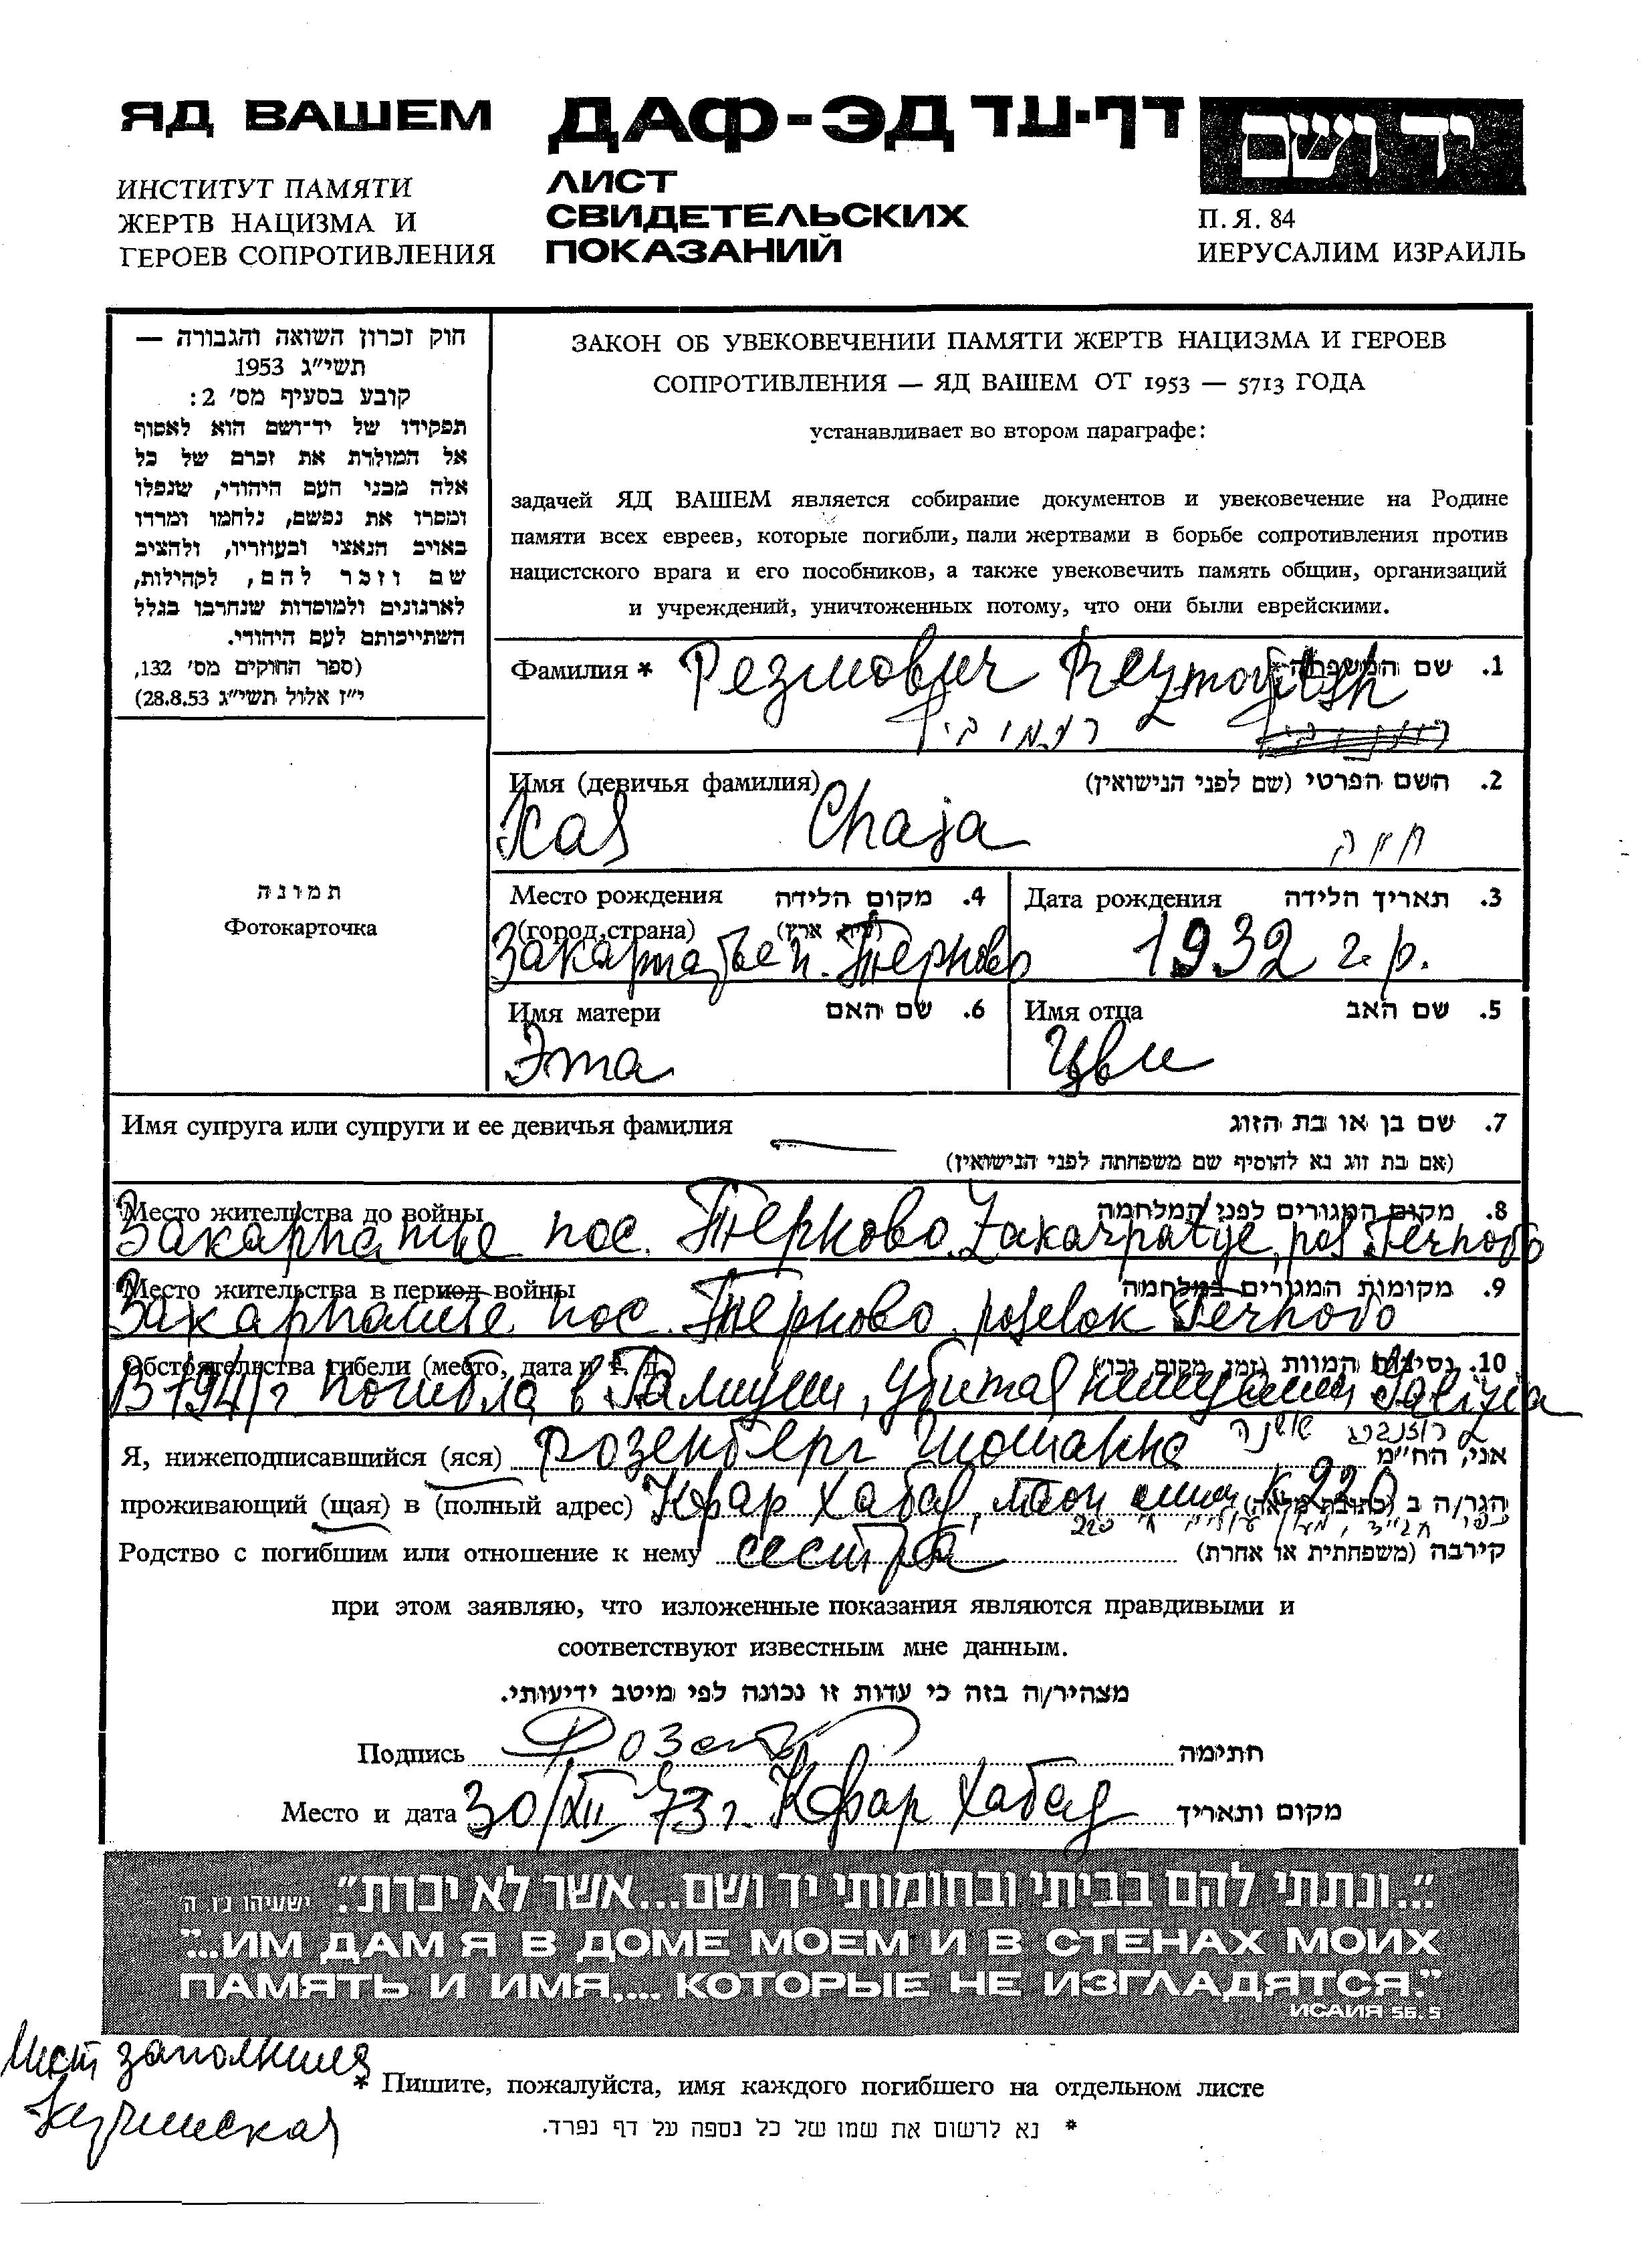 ЯД ВАШЕМ
ИНСТИТУТ ПАМЯТИ
ЖЕРТВ НАЦИЗМА И
ГЕРОЕВ СОПРОТИВЛЕНИЯ
ДАФ-ЭД דף-עד
ЛИСТ
СВИДЕТЕЛЬСКИХ
ПОКАЗАНИЙ
יד ושם
П. Я. 84
ИЕРУСАЛИМ ИЗРАИЛЬ
חוק זכרון השואה והגבורה —
תשי״ג 1953
קובע בסעיף מס׳ 2:
תפקידו של יד־ושם הוא לאסוף
אל המולדת את זכרם של כל
אלה מבני העם היהודי, שנפלו
ומסרו את נפשם, נלחמו ומרדו
באויב הנאצי ובעוזריו, ולהציב
שם וזכר להם, לקהילות,
לארגונים ולמוסדות שנחרבו בגלל
השתייכותם לעם היהודי.
(ספר החוקים מס׳ 132,
י״ז אלול תשי״ג 28.8.53)
תמונה
Фотокарточка
ЗАКОН ОБ УВЕКОВЕЧЕНИИ ПАМЯТИ ЖЕРТВ НАЦИЗМА И ГЕРОЕВ
СОПРОТИВЛЕНИЯ — ЯД ВАШЕМ ОТ 1953 — 5713 ГОДА
устанавливает во втором параграфе:
задачей ЯД ВАШЕМ является собирание документов и увековечение на Родине
памяти всех евреев, которые погибли, пали жертвами в борьбе сопротивления против
нацистского врага и его пособников, а также увековечить память общин, организаций
и учреждений, уничтоженных потому, что они были еврейскими.
Фамилия * Резмович Rezmovitsh 1. שם המשפחה*
רזמוביץ
Имя (девичья фамилия) 2. השם הפרטי (שם לפני הנישואין)
Хая Chaja חיה
Место рождения 4. מקום הלידה
(город, страна) (עיר, ארץ)
Закарпатье п. Терново
Дата рождения 3. תאריך הלידה
1932 г.р.
Имя матери 6. שם האם
Эта
Имя отца 5. שם האב
Цви
Имя супруга или супруги и ее девичья фамилия — 7. שם בן או בת הזוג
(אם בת זוג נא להוסיף שם משפחתה לפני הנישואין)
Место жительства до войны 8. מקום המגורים לפני המלחמה
Закарпатье пос. Терново Zakarpatye, pos Ternovo
Место жительства в период войны 9. מקומות המגורים במלחמה
Закарпатье пос. Терново, poselok Ternovo
Обстоятельства гибели (место, дата и т. д.) 10. נסיבות המוות (זמן, מקום וכו׳)
В 1941 г погибла в Галиции, убитая немцами Galizia
Я, нижеподписавшийся (яся) Розенберг Шошанна רוזנברג שושנה אני, הח״מ
проживающий (щая) в (полный адрес) Кфар Хабад, маон олим к 220 הגר/ה ב (כתובת מלאה)
כפר חב״ד, מעון עולים ח׳ 220
Родство с погибшим или отношение к нему сестра קירבה (משפחתית או אחרת)
при этом заявляю, что изложенные показания являются правдивыми и
соответствуют известным мне данным.
מצהיר/ה בזה כי עדות זו נכונה לפי מיטב ידיעותי.
Подпись Розен חתימה
Место и дата 30/XII 73 г. Кфар Хабад מקום ותאריך
״...ונתתי להם בביתי ובחומותי יד ושם...אשר לא יכרת״. ישעיהו נ״ו, ה׳
"...ИМ ДАМ Я В ДОМЕ МОЕМ И В СТЕНАХ МОИХ
ПАМЯТЬ И ИМЯ,... КОТОРЫЕ НЕ ИЗГЛАДЯТСЯ."
ИСАИЯ 56, 5
Лист заполнила
* Пишите, пожалуйста, имя каждого погибшего на отдельном листе
* נא לרשום את שמו של כל נספה על דף נפרד.